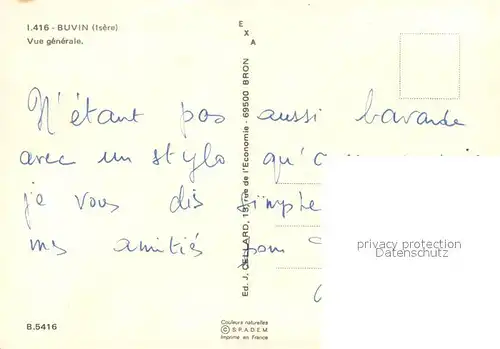 I.416 - BUVIN (Isère)
Vue générale.
EXA
N'étant pas aussi bavarde
avec un stylo qu'a
je vous dis simple
mes amitiés pour
Ed. J. CELLARD, 19, rue de l'Economie - 69500 BRON
privacy protection
Datenschutz
B.5416
Couleurs naturelles
© S.P.A.D.E.M.
Imprimé en France